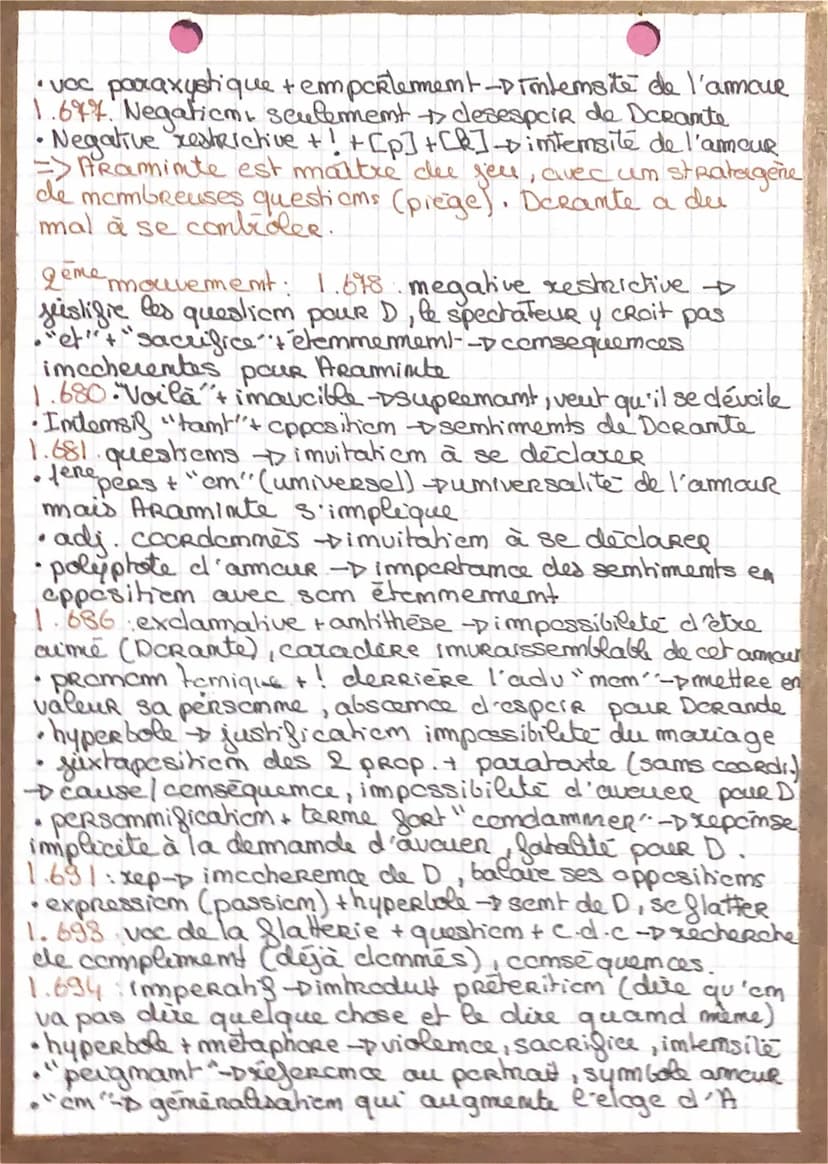 • voc paraxystique + emportement → intensité de l'amour
l.677. Negation, seulement → desespoir de Dorante
• Negative restrictive + ! + [p] + [k] → intensité de l'amour
=> Araminte est maître du jeu, avec un stratagène
de nombreuses questions (piège). Dorante a du
mal à se contrôler.
2ème mouvement : l.678. negative restrictive →
justifie les question pour D, le spectateur y croit pas
• "et" + "sacrifice" + étonnement → consequences
incoherentes pour Araminte
l.680 • "Voilà" + inaucible → suprenant, veut qu'il se dévoile
• Intensif "tant" + opposition → sentiments de Dorante
l.681. questions → invitation à se déclarer
• 1ère pers + "on" (universel) → universalité de l'amour
mais Araminte s'implique
• adj. coordonnés → invitation à se déclarer
• polyptote d'amour → importance des sentiments en
opposition avec son étonnement
l.686 : exclamative + antithèse → impossibileté d'être
aimé (Dorante), caractère invraissemblable de cet amour
• pronom tonique + ! derrière l'adv "non" → mettre en
valeur sa personne, absence d'espoir pour Dorande
• hyperbole → justification impossibilité du mariage
• juxtaposition des 2 prop. + parataxte (sans coordi.)
→ cause/conséquence, impossibilité d'avouer pour D
• personnification + terme fort "condamner" → reponse
implicite à la demande d'avouer, fatalité pour D.
l.691 : rep → incoherence de D, balaie ses oppositions
• expression (passion) + hyperbole → sent de D, se flatter
l.693 voc de la flatterie + question + c.d.c → recherche
de compliment (déjà donnés), conséquences.
l.694 : imperatif → introduit préterition (dire qu'on
va pas dire quelque chose et le dire quand même)
• hyperbole + métaphore → violence, sacrifice, intensité
• "peignant" → réference au portrait, symbole amour
• "on" → généralisation qui augmente l'eloge d'A